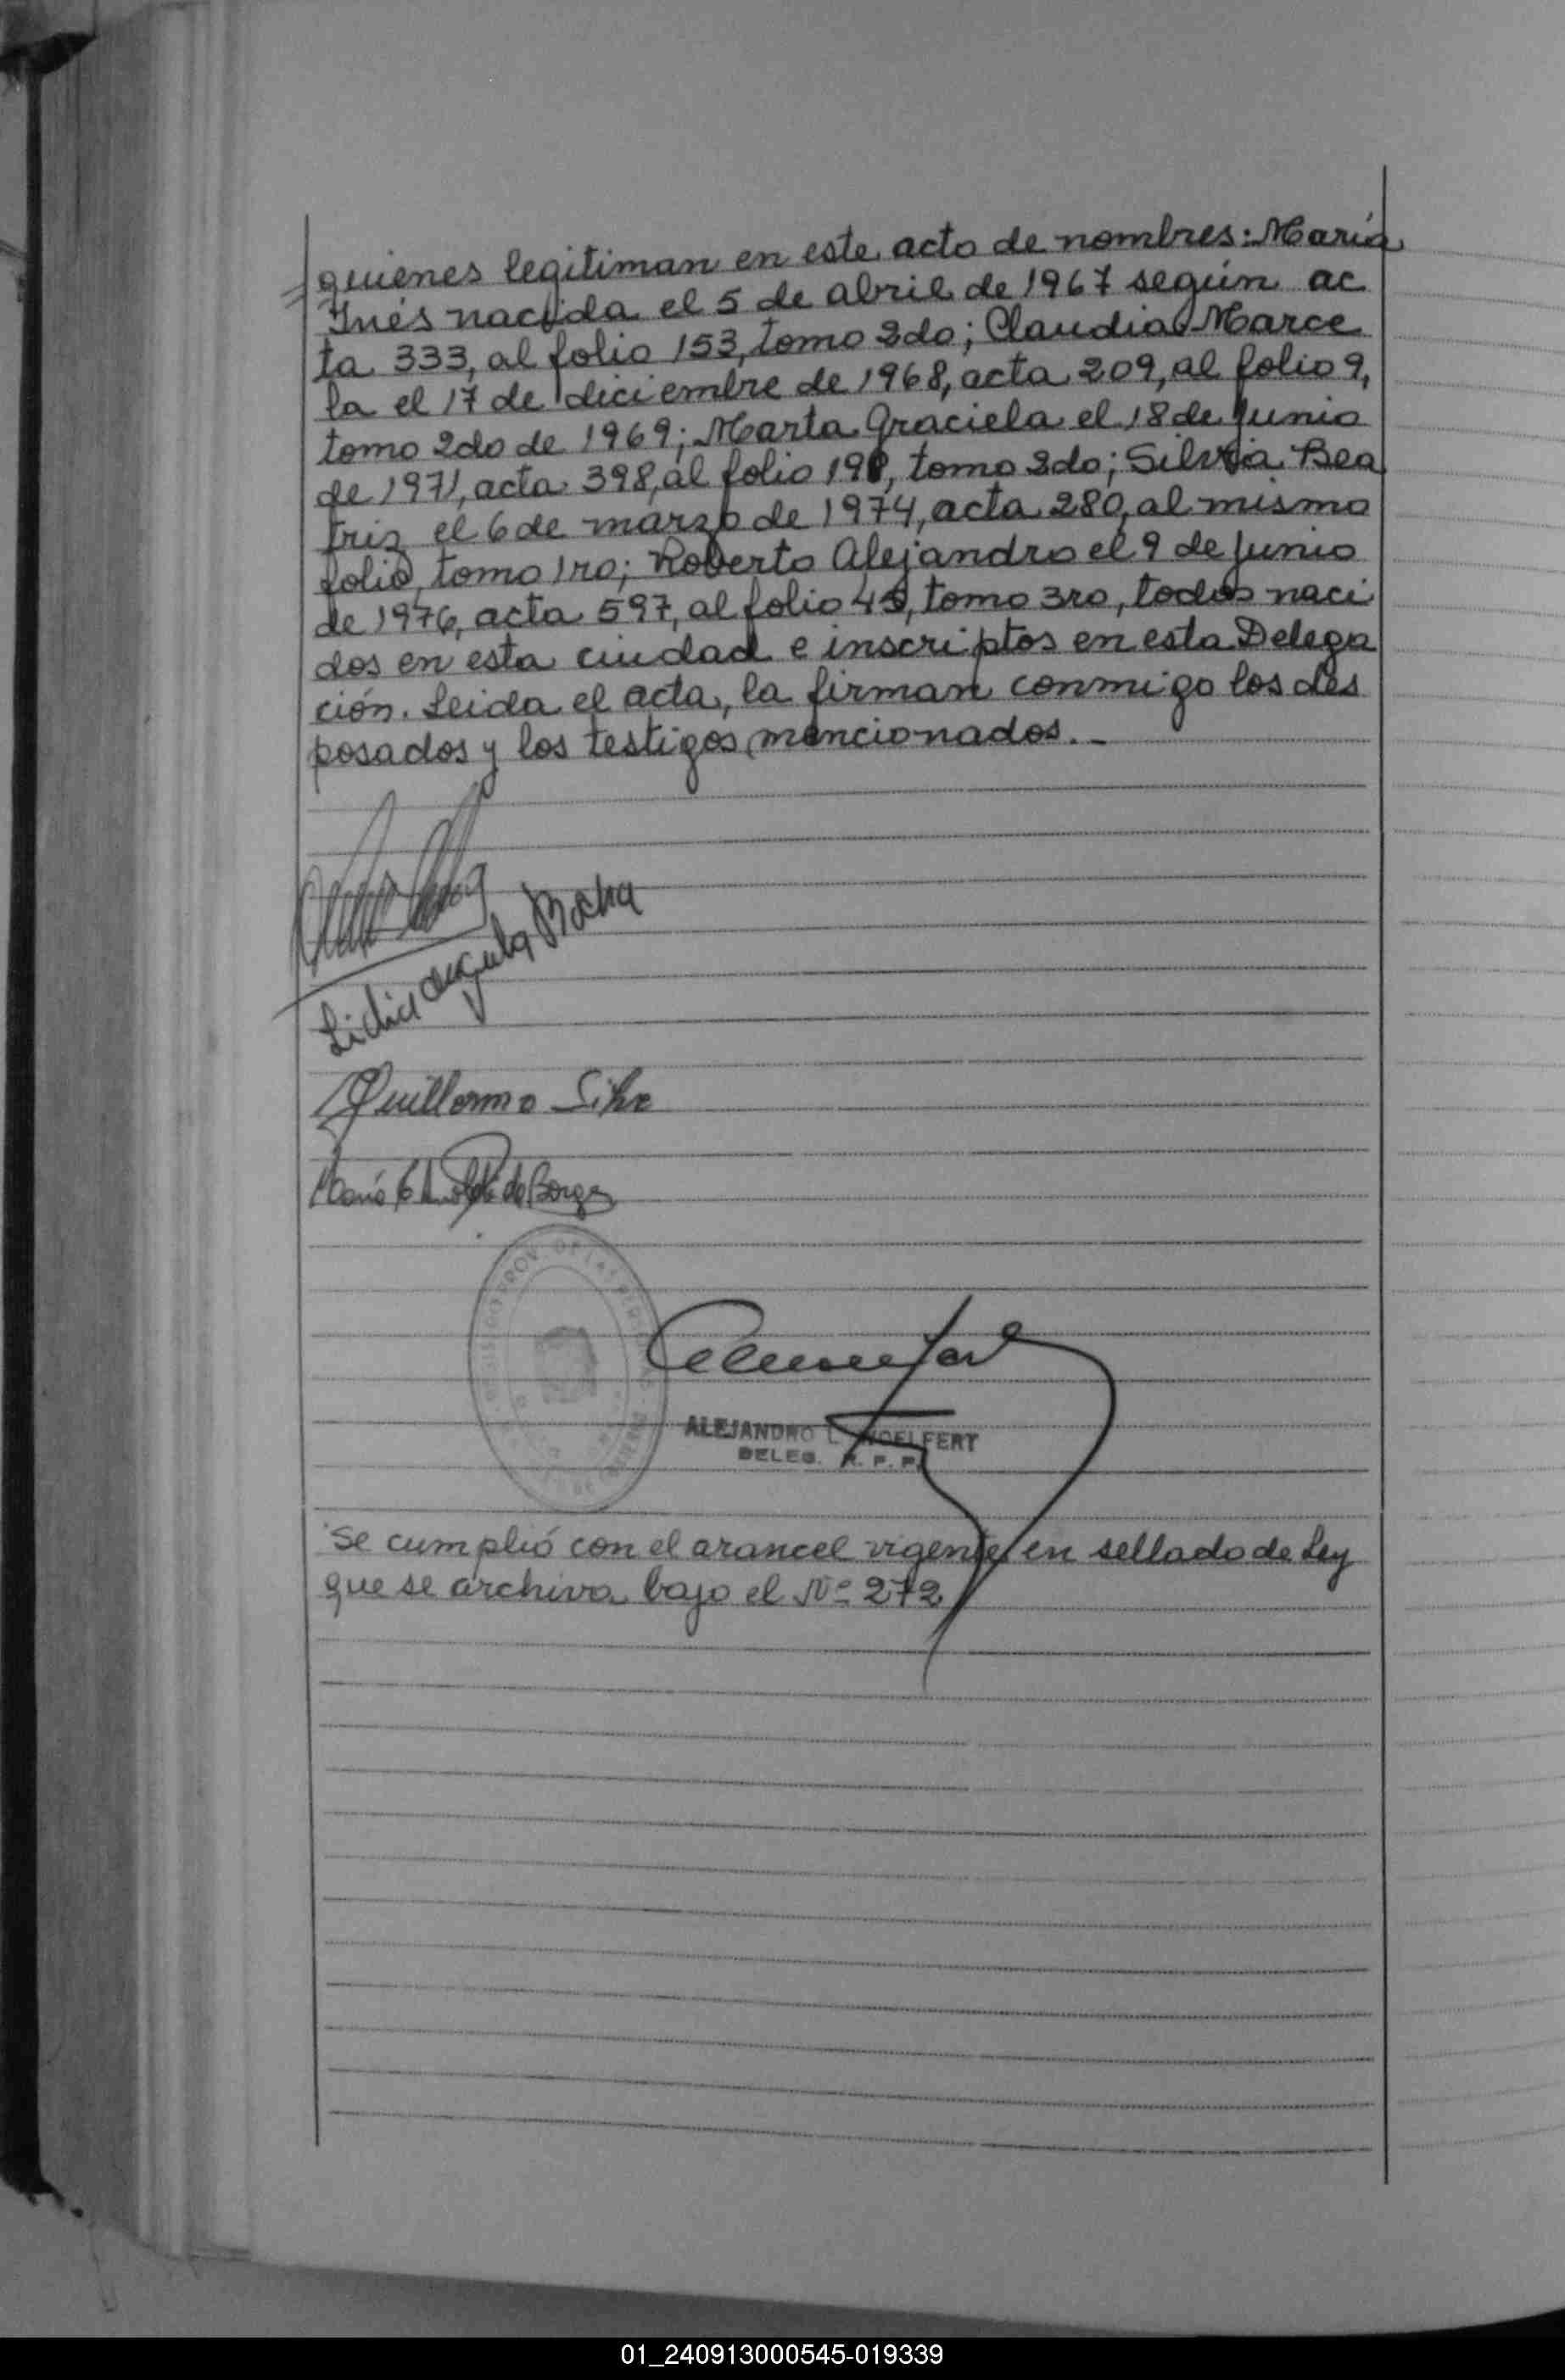 quienes legitiman en este acto de nombres: María
Inés nacida el 5 de abril de 1967 según ac
ta 333, al folio 153, tomo 2do; Claudia Marce
la el 17 de diciembre de 1968, acta 209, al folio 9,
tomo 2do de 1969; Marta Graciela el 18 de junio
de 1971, acta 398, al folio 198, tomo 2do; Silvia Bea
triz el 6 de marzo de 1974, acta 280, al mismo
folio, tomo 1ro; Roberto Alejandro el 9 de junio
de 1976, acta 597, al folio 45, tomo 3ro, todos naci
dos en esta ciudad e inscriptos en esta Delega
ción. Leida el acta, la firman conmigo los des
posados y los testigos mencionados.-
Lidia Rocha
Guillermo Silva
María de Borges
ALEJANDRO L. WOELFERT
DELEG. R. P. P.
Se cumplió con el arancel vigente en sellado de Ley
que se archiva bajo el Nº 272
01_240913000545-019339